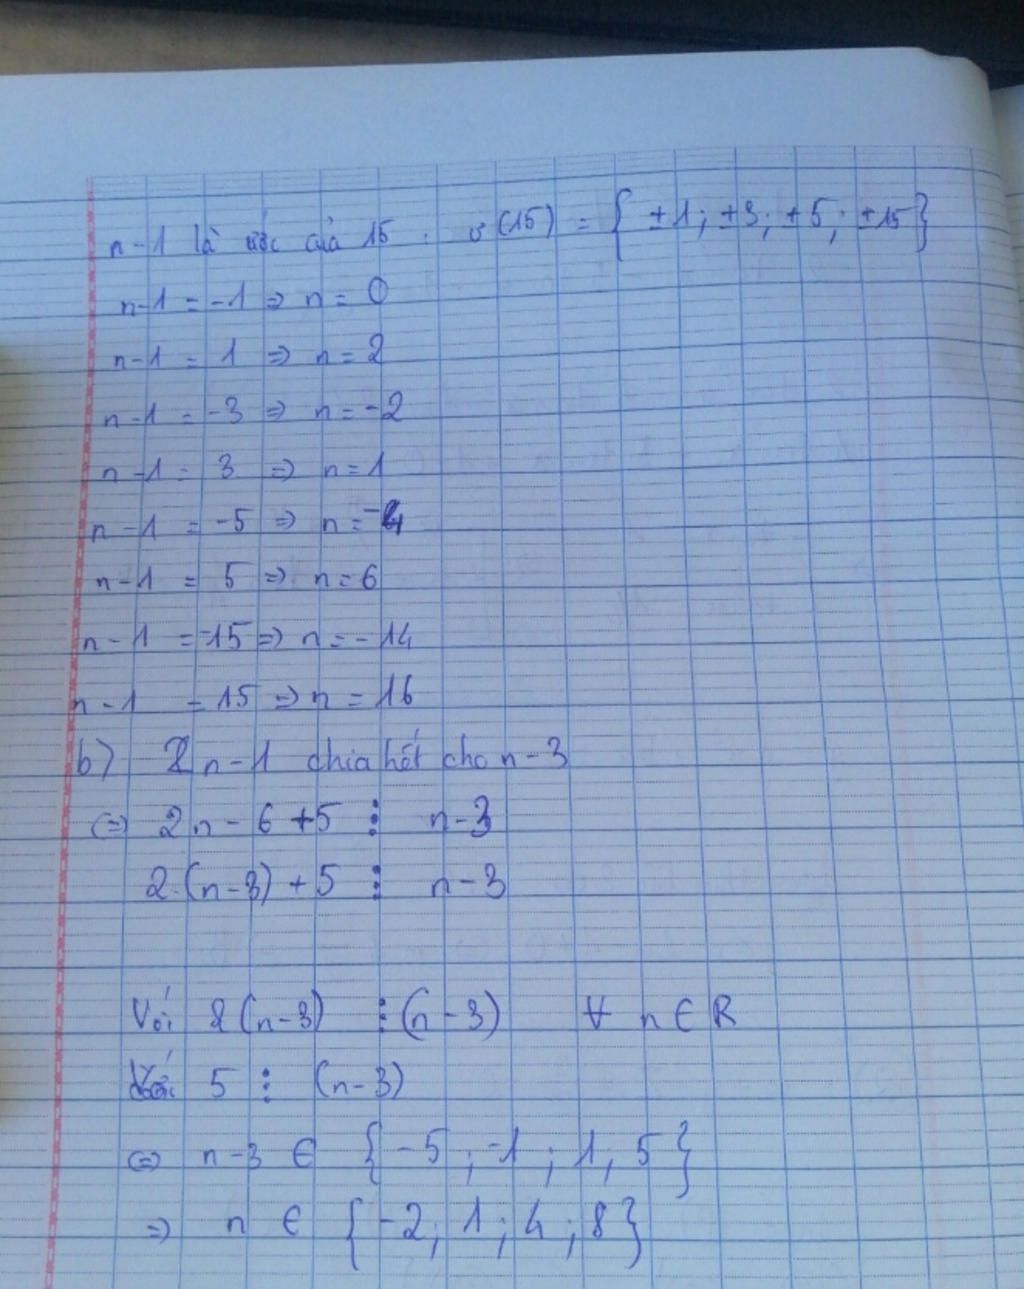 n-1 là ước của 15. ư(15) = { ±1; ±3; ±5; ±15}
n-1 = -1 => n = 0
n-1 = 1 => n = 2
n-1 = -3 => n = -2
n-1 = 3 => n = 1
n-1 = -5 => n = -4
n-1 = 5 => n = 6
n-1 = -15 => n = -14
n-1 = 15 => n = 16
b) 2n-1 chia hết cho n-3
<=> 2n-6+5 ⋮ n-3
2.(n-3)+5 ⋮ n-3
Với 2(n-3) ⋮ (n-3) ∀ n ∈ R
5 ⋮ (n-3)
<=> n-3 ∈ {-5; -1; 1, 5}
=> n ∈ {-2; 1; 4; 8}